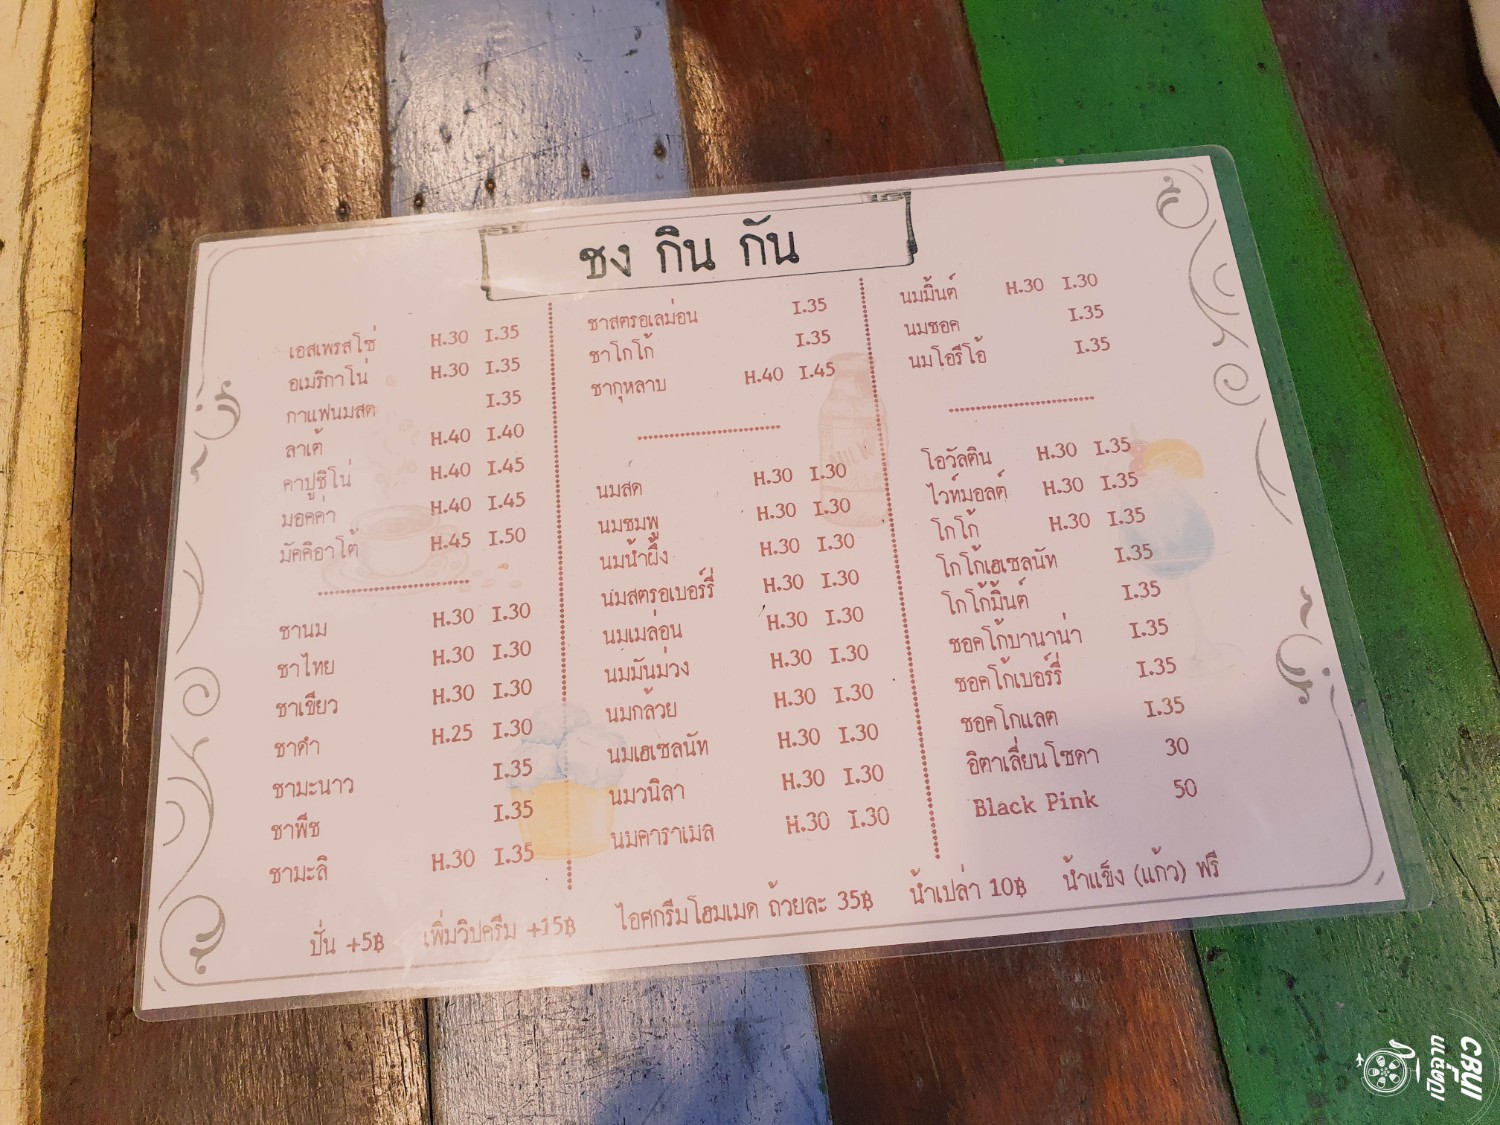 ชง กิน กัน
เอสเพรสโซ่ H.30 I.35
อเมริกาโน่ H.30 I.35
กาแฟนมสด I.35
ลาเต้ H.40 I.40
คาปูชิโน่ H.40 I.45
มอคค่า H.40 I.45
มัคคิอาโต้ H.45 I.50
ชานม H.30 I.30
ชาไทย H.30 I.30
ชาเขียว H.30 I.30
ชาดำ H.25 I.30
ชามะนาว I.35
ชาพีช I.35
ชามะลิ H.30 I.35
ชาสตรอเลม่อน I.35
ชาโกโก้ I.35
ชากุหลาบ H.40 I.45
นมสด H.30 I.30
นมชมพู H.30 I.30
นมน้ำผึ้ง H.30 I.30
นมสตรอเบอร์รี่ H.30 I.30
นมเมล่อน H.30 I.30
นมมันม่วง H.30 I.30
นมกล้วย H.30 I.30
นมเฮเซลนัท H.30 I.30
นมวนิลา H.30 I.30
นมคาราเมล H.30 I.30
นมมิ้นต์ H.30 I.30
นมชอค I.35
นมโอรีโอ้ I.35
โอวัลติน H.30 I.35
ไวท์มอลต์ H.30 I.35
โกโก้ H.30 I.35
โกโก้เฮเซลนัท I.35
โกโก้มิ้นต์ I.35
ชอคโก้บานาน่า I.35
ชอคโก้เบอร์รี่ I.35
ชอคโกแลต I.35
อิตาเลี่ยนโซดา 30
Black Pink 50
ปั่น +5฿ เพิ่มวิปครีม +15฿ ไอศกรีมโฮมเมด ถ้วยละ 35฿ น้ำเปล่า 10฿ น้ำแข็ง (แก้ว) ฟรี
MILK
เปิดฉาก
เคี้ยว